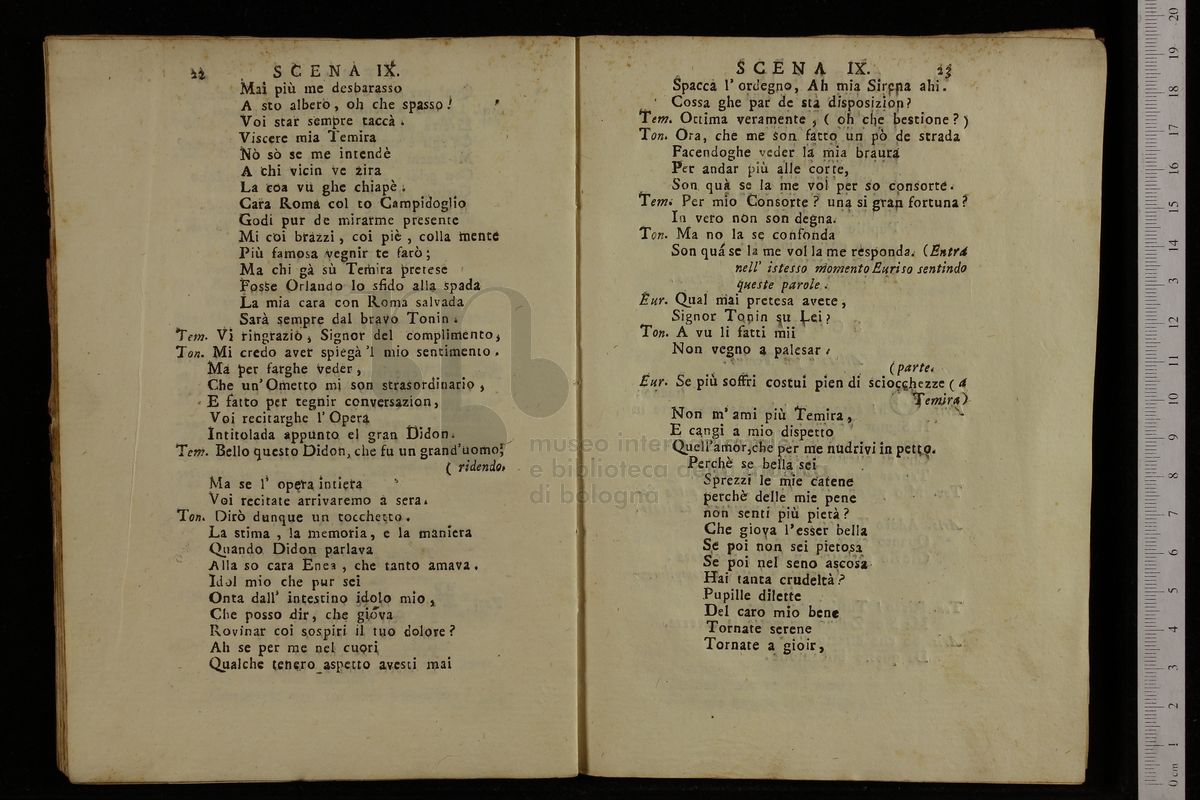 22 SCENA IX.
Mai più me desbarasso
A sto albero, oh che spasso!
Voi star sempre taccà.
Viscere mia Temira
Nò sò se me intendè
A chi vicin ve zira
La coa vu ghe chiapè.
Cara Roma col to Campidoglio
Godi pur de mirarme presente
Mi coi brazzi, coi piè, colla mente
Più famosa vegnir te farò;
Ma chi gà sù Temira pretese
Fosse Orlando lo sfido alla spada
La mia cara con Roma salvada
Sarà sempre dal bravo Tonin.
Tem. Vi ringrazio, Signor del complimento,
Ton. Mi credo aver spiegà 'l mio sentimento.
Ma per farghe veder,
Che un' Ometto mi son strasordinario,
E fatto per tegnir conversazion,
Voi recitarghe l' Opera
Intitolada appunto el gran Didon.
Tem. Bello questo Didon, che fu un grand'uomo;
( ridendo.
Ma se l' opera intiera
Voi recitate arrivaremo a sera.
Ton. Dirò dunque un tocchetto.
La stima, la memoria, e la maniera
Quando Didon parlava
Alla so cara Enea, che tanto amava.
Idol mio che pur sei
Onta dall' intestino idolo mio,
Che posso dir, che giova
Rovinar coi sospiri il tuo dolore?
Ah se per me nel cuori
Qualche tenero aspetto avesti mai
SCENA IX. 23
Spacca l' ordegno, Ah mia Sirena ahi.
Cossa ghe par de sta disposizion?
Tem. Ottima veramente, ( oh che bestione? )
Ton. Ora, che me son fatto un pò de strada
Facendoghe veder la mia braura
Per andar più alle corte,
Son quà se la me vol per so consorte.
Tem. Per mio Consorte? una si gran fortuna?
In vero non son degna.
Ton. Ma no la se confonda
Son quá se la me vol la me responda. (Entra
nell' istesso momento Euriso sentindo
queste parole.
Eur. Qual mai pretesa avete,
Signor Tonin su Lei?
Ton. A vu li fatti mii
Non vegno a palesar.
(parte.
Eur. Se più soffri costui pien di sciocchezze ( a
Temira)
Non m' ami più Temira,
E cangi a mio dispetto
Quell'amor, che per me nudrivi in petto.
Perchè se bella sei
Sprezzi le mie catene
perchè delle mie pene
non senti più pietà?
Che giova l'esser bella
Se poi non sei pietosa
Se poi nel seno ascosa
Hai tanta crudeltà?
Pupille dilette
Del caro mio bene
Tornate serene
Tornate a gioir,
museo internazionale
e biblioteca della musica
di bologna
0 cm 1 2 3 4 5 6 7 8 9 10 11 12 13 14 15 16 17 18 19 20